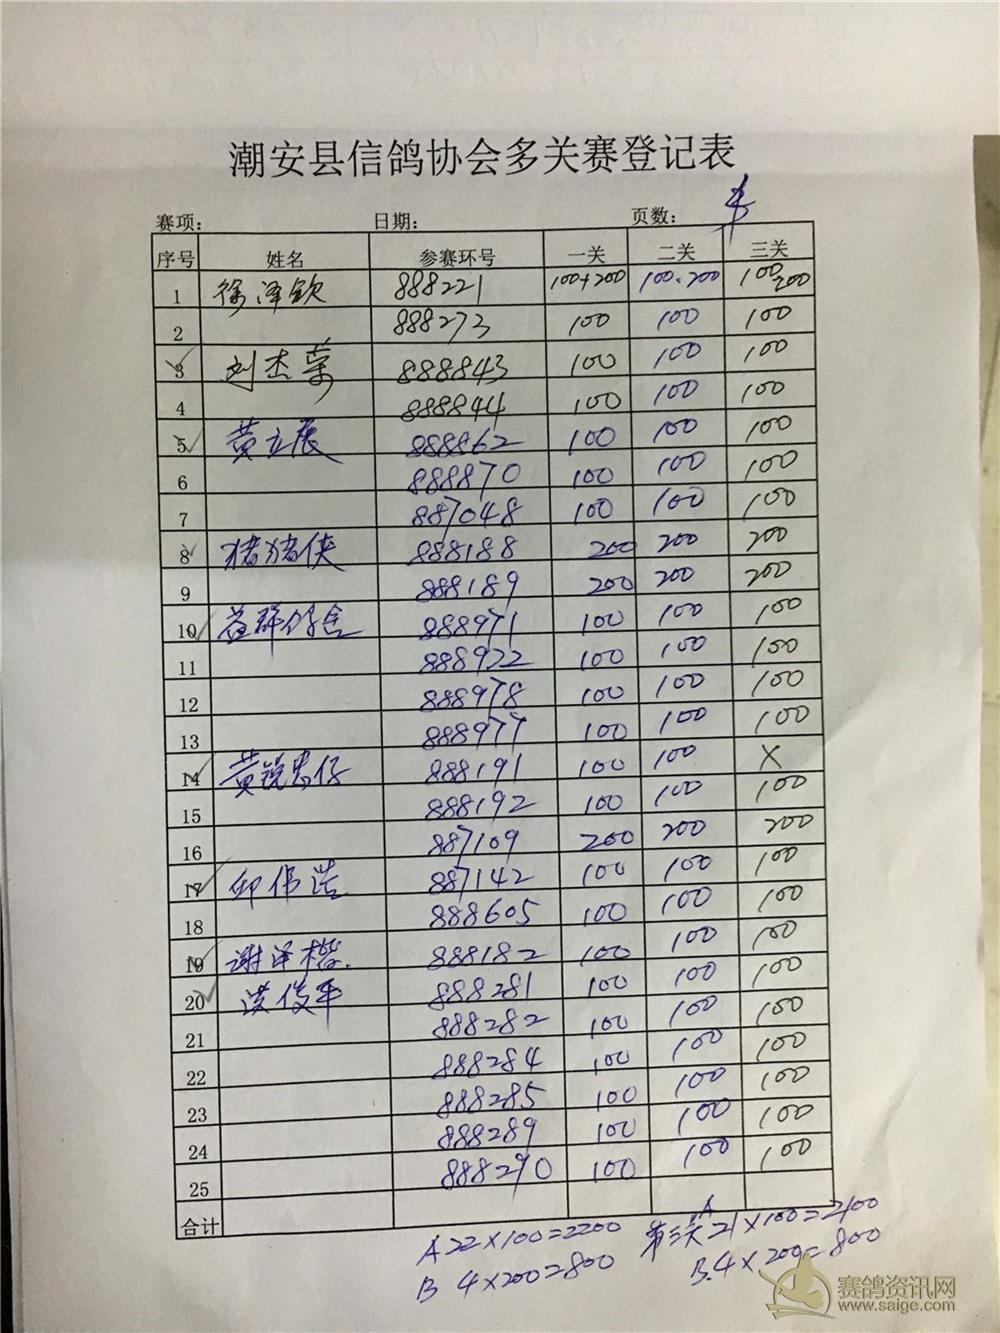 潮安县信鸽协会多关赛登记表
赛项: 日期: 页数:
序号 姓名 参赛环号 一关 二关 三关
1 徐泽钦 888221 100+200 100.200 100 200
2 888273 100 100 100
3 刘杰荣 888843 100 100 100
4 888844 100 100 100
5 黄立展 888862 100 100 100
6 888870 100 100 100
7 887048 100 100 100
8 猪猪侠 888188 200 200 200
9 888189 200 200 200
10 益群鸽舍 888971 100 100 100
11 888972 100 100 100
12 888978 100 100 100
13 888977 100 100 100
14 黄锐忠仔 888191 100 100 X
15 888192 100 100 100
16 887109 200 200 200
17 邱伟浩 887142 100 100 100
18 888605 100 100 100
19 谢泽楷. 888182 100 100 100
20 洪俊平 888281 100 100 100
21 888282 100 100 100
22 888284 100 100 100
23 888285 100 100 100
24 888289 100 100 100
25 888290 100 100 100
合计
A 22×100=2200 第三关 A 21×100=2100
B 4×200=800 B.4×200=800
赛鸽资讯网
www.saige.com